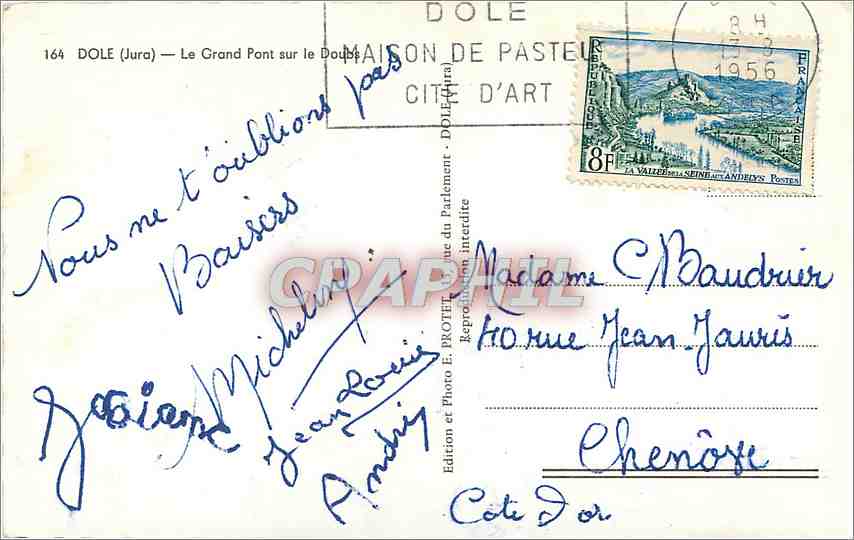 164 DOLE (Jura) — Le Grand Pont sur le Doubs
DOLE
MAISON DE PASTEU
CITE D'ART
8 H
13 8
1956
REPUBLIQUE FRANÇAISE
8F
LA VALLÉE DE LA SEINE AUX ANDELYS POSTES
Nous ne t'oublions pas
Baisers
Micheline
Josiane
Jean Louis
André
Edition et Photo E. PROTET, rue du Parlement - DOLE (Jura)
Reproduction interdite
CPAPHIL
Madame C Baudrier
40 rue Jean-Jauris
Chenôve
Cote d'or